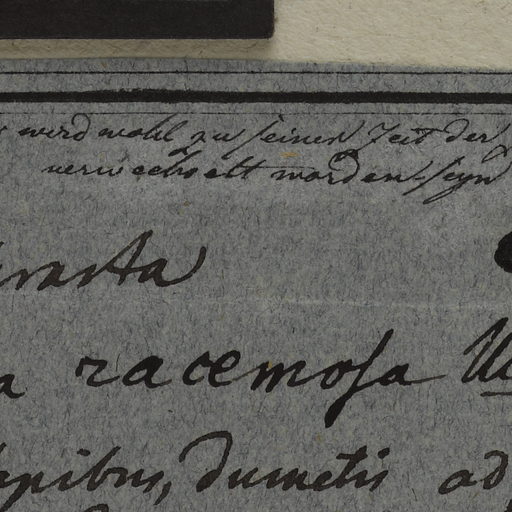 wird wohl zu seiner Zeit der
verwechselt worden seyn
racemosa
dumetis ad